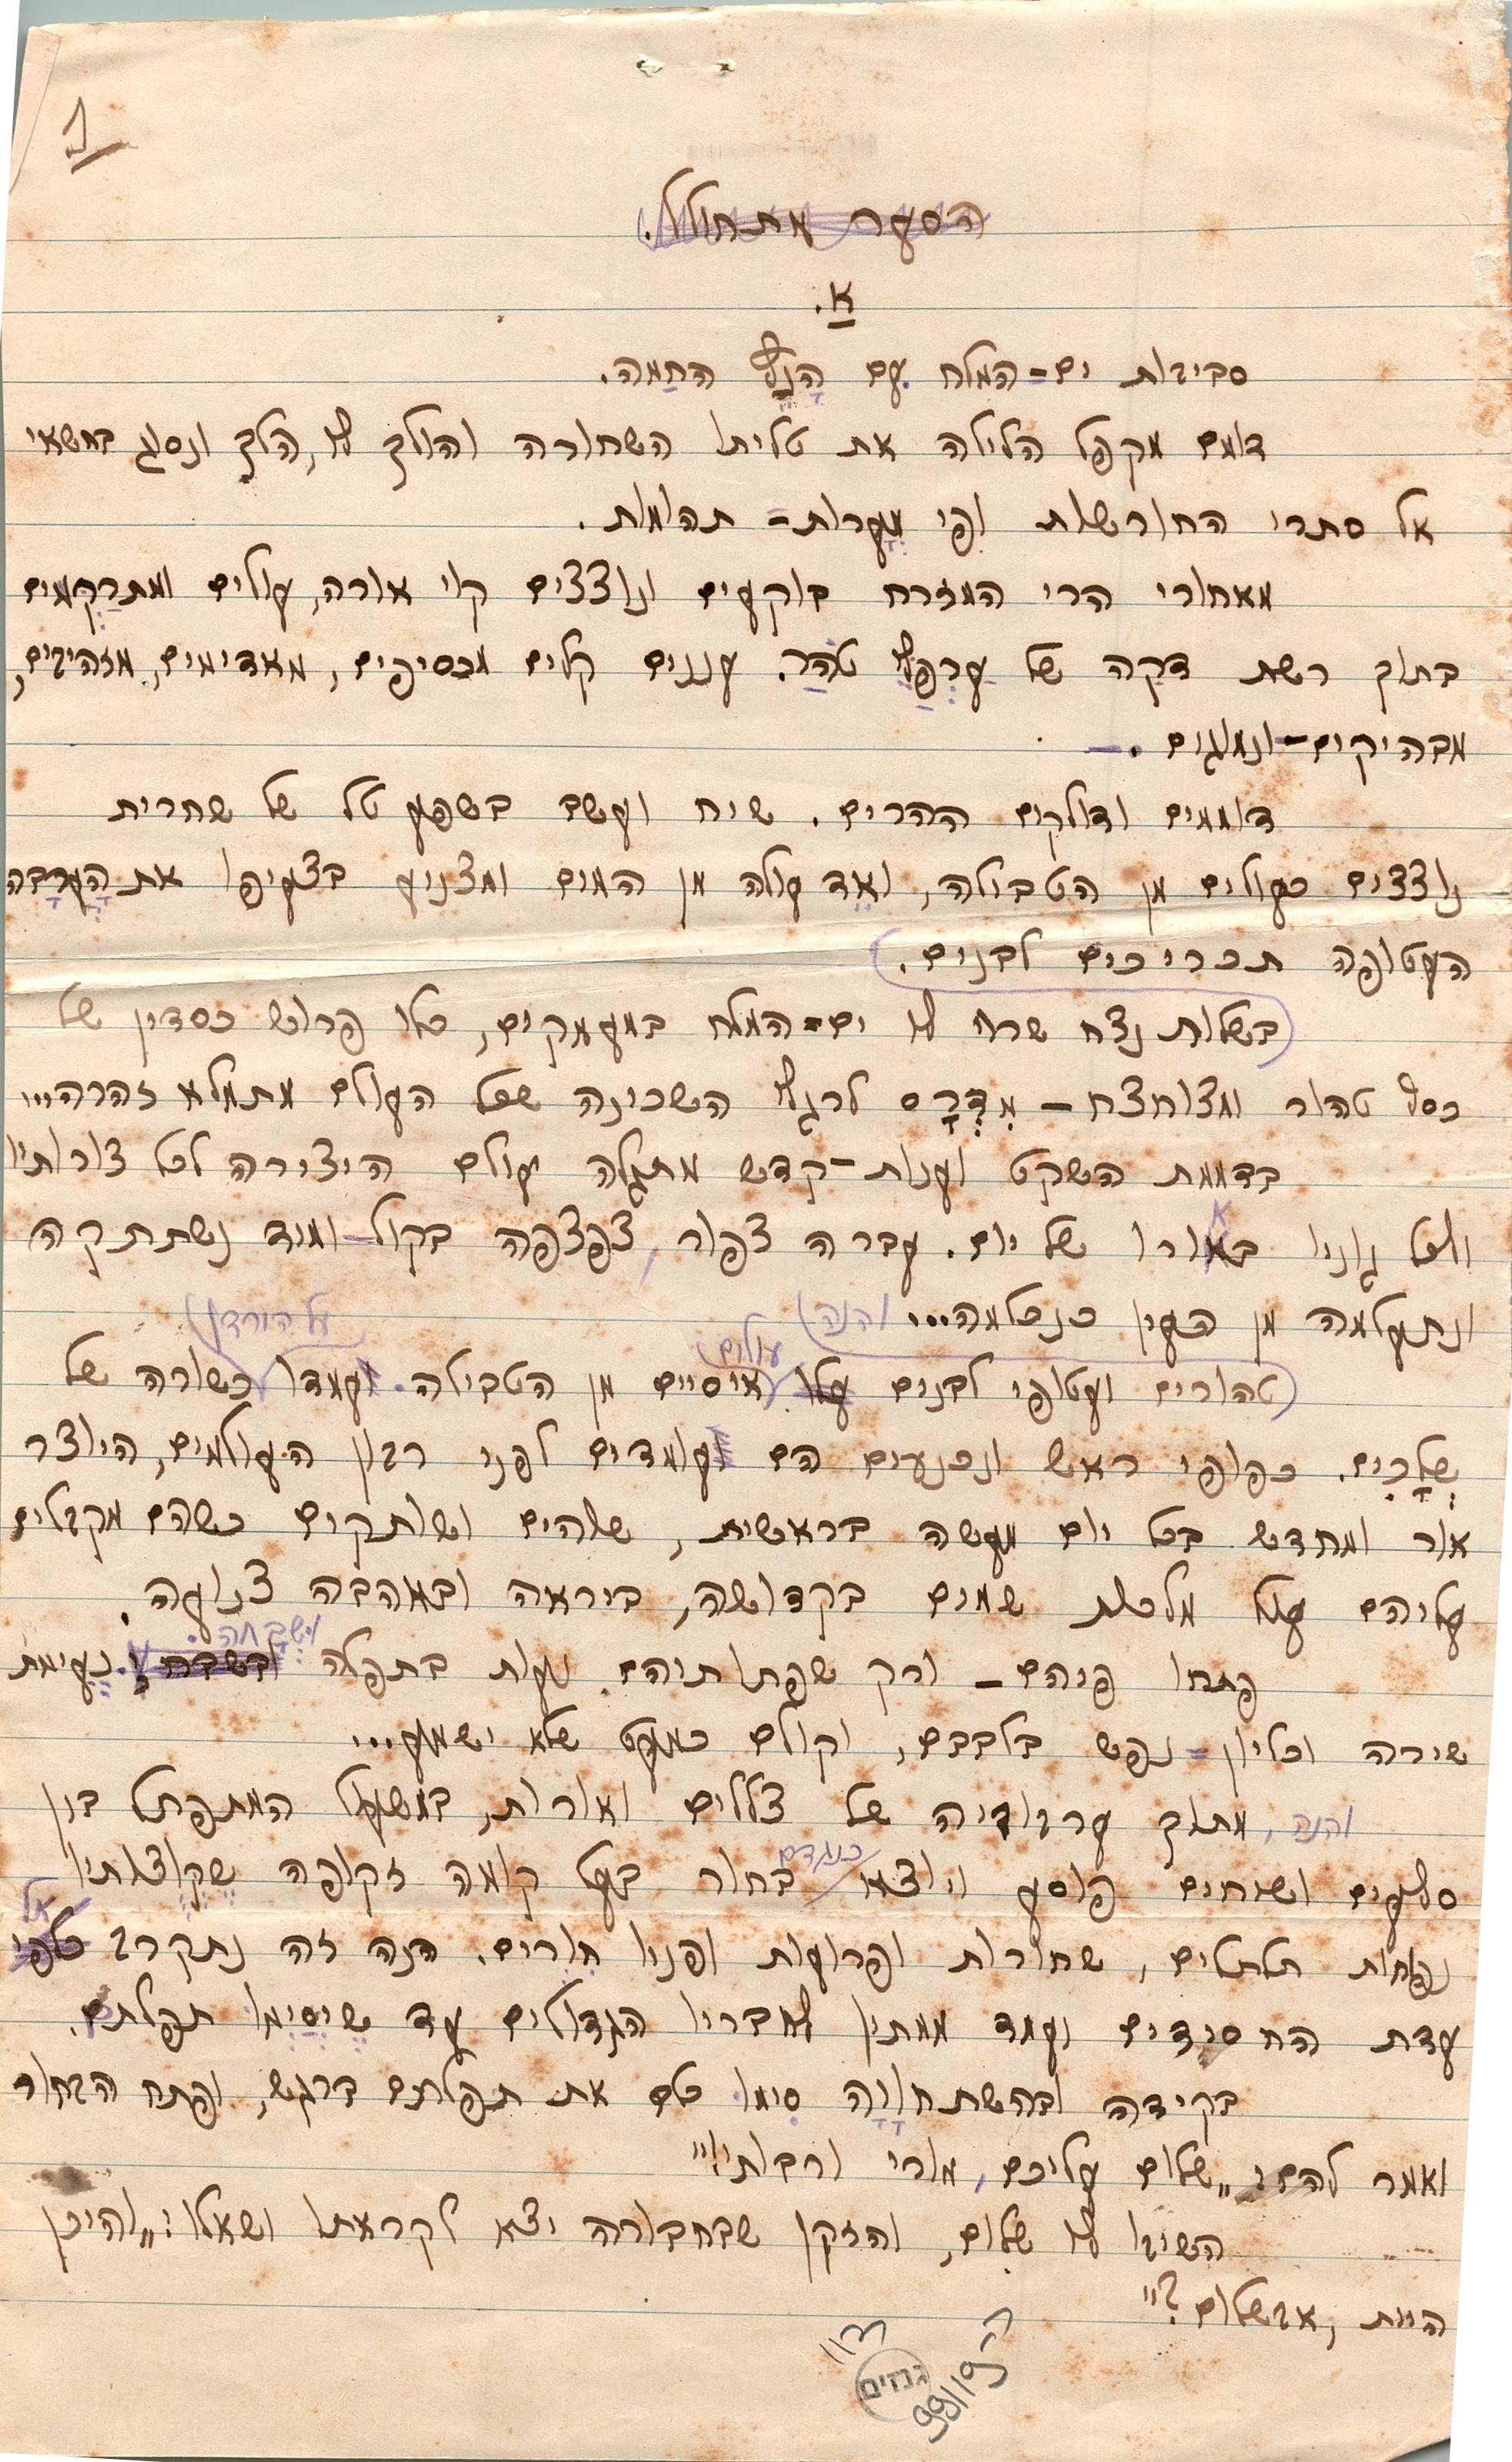 1
הסער מתחולל.
א.
סביבות ים-המלח עם הָנֵץ הַחַמה.
דומם מקפל הלילה את טליתו השחורה והולך לו, הלך ונסוג בחשאי
אל סתרי החורשות ופי מְעָרות-תהומות.
מאחורי הרי המזרח בוקעים ונוצצים קוי אורה, עולים ומתרַקְמים
בתוך רשת דקה של עֲרָפֶל טֹהַר. עננים קלים מכסיפים, מאדימים, מזהיבים,
מבהיקים-ונמוגים.
דוממים ודולקים ההרים. שיח ועשב בשפע טל של שחרית
נוצצים כעולים מן הטבילה, ואֵד עולה מן המים ומצניע בצעיפו את הָעֲרָבָה
העטופה תכריכים לבנים.
בשלות נצח שרוי לו ים-המלח במעמקים, כאלו פרוש כסדין של
כסף טהור ומצוחצח - מִדְרָס לרגלי השכינה שכל העולם מתמלא זהרה...
בדממת השקט וענות-קדש מתגלה עולם היצירה לכל צורותיו
ולכל גוניו באורו של יום. עברה צפור, צפצפה בקול ומיד נשתתקה
ונתעלמה מן העין כנכלמה... והנה
על הירדן
עולים
טהורים ועטופי לבנים עלו איסיים מן הטבילה ועמדו כשורה של
שְׁלָבִים. כפופי ראש ונכנעים הם עומדים לפני רבון העולמים, היוצר
אור ומחדש בכל יום מעשה בראשית, שוהים ושותקים כשהם מקבלים
עליהם עול מלכות שמים בקדושה, ביראה ובאהבה צנועה.
ושְׁבָחָה.
פתחו פיהם - ורק שפתותיהם נעות בתפלה ובשבח, נְעימת
שירה וכליון-נפש בלבבם, וקולם כמעט שלא ישמע...
והנה, מתוך ערבוביה של צללים ואורות, במשעול המתפתל בין
כנגדם
סלעים ושיחים פוסע ויוצא בחור בעל קומה זקופה שֶׁקְוֻצותיו
אל
נפוחות תלתלים, שחורות ופרועות ופניו חִורים. הנה זה נתקרב כלפי
עדת החסידים ועמד ממתין לחבריו הגדולים עד שֶׁיְסַיְמו תפלתם.
בקידה ובהשתחוָיָה סִימו כלם את תפלתם ברגש, ופתח הבחור
ואמר להם: „שלום עליכם, מורי ורבותי!"
השיבו לו שלום, והזקן שבחבורה יצא לקראתו ושאלו: „והיכן
היית, אבשלום?"
גנזים